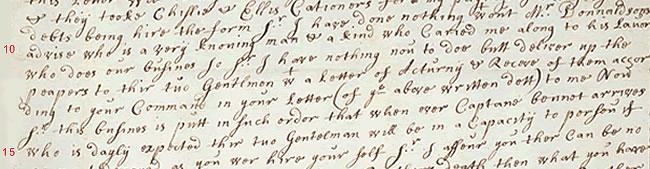 & they tooke Chissie & Ellis Cationers for
debts being hire the form Sr I have done nothing wout Mr Donaldsons
10 advise who is a very knouing man & a kind who Caried me along to his
who does our busines so Sr I have nothing nou to doe butt deliver up the
peapers to thir tuo Gentlmen & a Letter of Atturny & Receve of them accor
ding to your Command in your Letter (of ye above written dett) to me Nou
Sr this busines is putt in such order that when ever Captane bennot arrives
15 who is dayly expected thir tuo Gentelman will be in a Capacity to porsou if
as you wer hire your self Sr I assure you ther Can be no
death then what you have